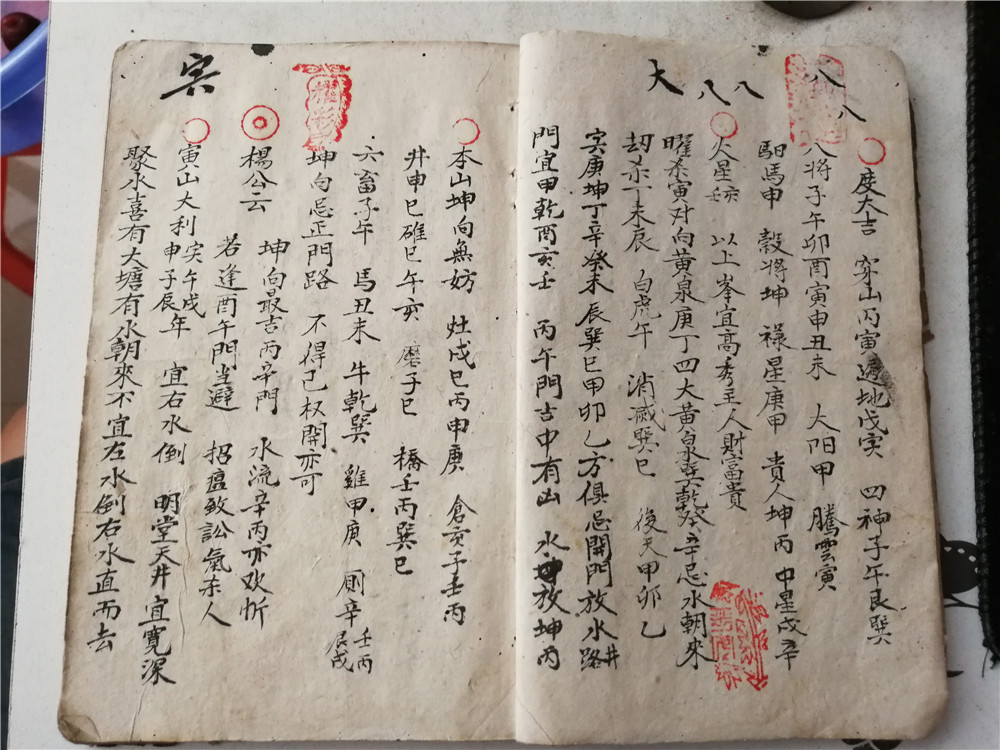 大
八
八
八
八
度大吉 穿山丙寅 遁地戊寅 四神子午艮巽
八將子午卯酉寅申丑未 太阳甲 騰雲寅
馹馬申 穀將坤 禄星庚甲 貴人坤丙 中星戍辛
火星壬亥 以上峯宜高秀主人財富貴
曜杀寅对向黄泉庚丁四大黄泉巽乾癸辛忌水朝來
劫杀丁未辰 白虎午 消滅巽巳 後天甲卯乙
寅庚坤丁辛癸未辰巽巳甲卯乙方俱忌開門放水路井
門宜甲乾酉亥壬 丙午門吉中有凶 水 放坤丙
寅
本山坤向無妨 灶戍巳丙申庚 倉亥子壬丙
井申巳碓巳午亥 磨子巳 橋壬丙巽巳
六畜子午 馬丑未 牛乾巽 雞甲庚 厠辛壬丙辰戍
坤向忌正門路 不得已权開亦可
楊公云 坤向最吉丙辛門 水流辛丙亦欢忻
若逢酉午門当避 招瘟致訟氣杀人
寅山大利寅午戍申子辰年 宜右水倒 明堂天井宜寬深
聚水喜有大塘有水朝來不宜左水倒右水直而去